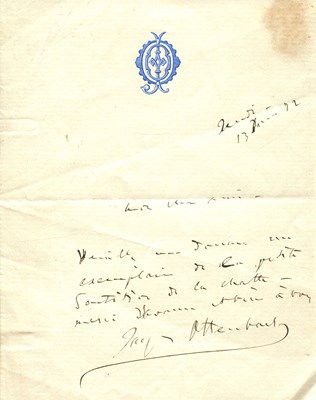 Jeudi
13 72
mon cher ami
Veuillez me donner un
exemplaire de la petite
partition de la chatte
merci d'avance bien à vous
Jacques Offenbach